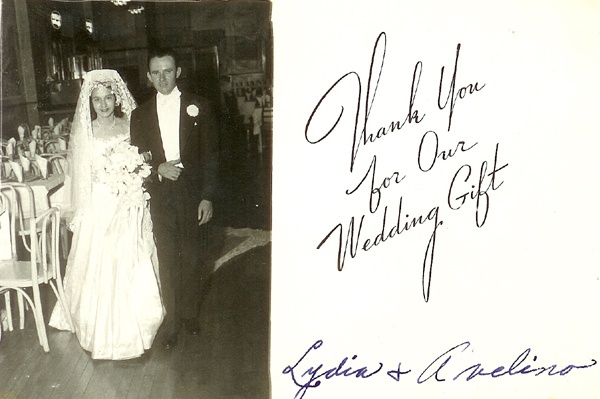 Thank You
for Our
Wedding Gift
Lydia & Avelino